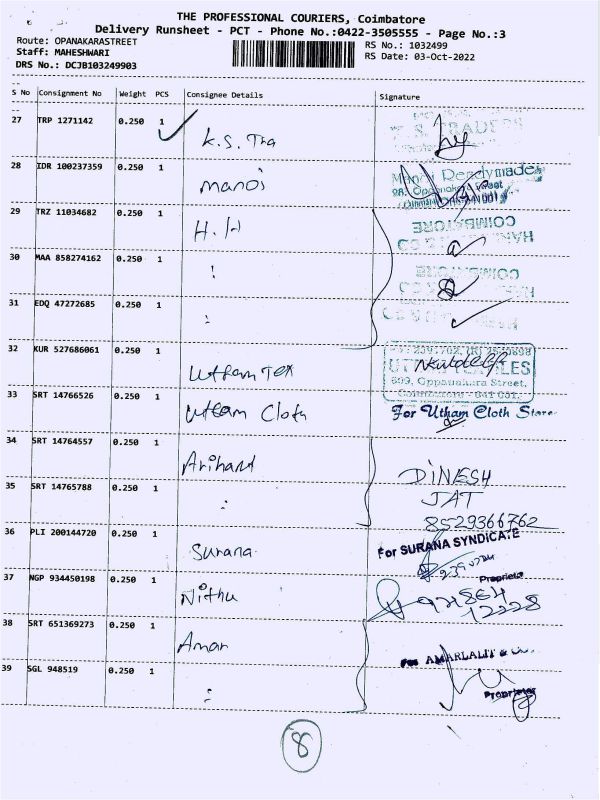 THE PROFESSIONAL COURIERS, Coimbatore
Delivery Runsheet - PCT - Phone No.:0422-3505555 - Page No.:3
Route: OPANAKARASTREET RS No.: 1032499
Staff: MAHESHWARI RS Date: 03-Oct-2022
DRS No.: DCJB103249903
S No Consignment No Weight PCS Consignee Details Signature
27 TRP 1271142 0.250 1
K.S. Tra
28 IDR 100237359 0.250 1
manoj Readymades
29 TRZ 11034682 0.250 1
H.H COIMBATORE
30 MAA 858274162 0.250 1
COIMBATORE
31 EDQ 47272685 0.250 1
32 KUR 527686061 0.250 1
Uttham Tex
809, Oppanakara Street,
33 SRT 14766526 0.250 1
Uttam Cloth For Utham Cloth Store
34 SRT 14764557 0.250 1
Arihant DINESH
35 SRT 14765788 0.250 1 JAT
8529366762
36 PLI 200144720 0.250 1
Surana For SURANA SYNDICATE
37 NGP 934450198 0.250 1 Proprietor
Nithu
12228
38 SRT 651369273 0.250 1
Aman For AMARLALIT & CO.
39 SGL 948519 0.250 1
Proprietor
8